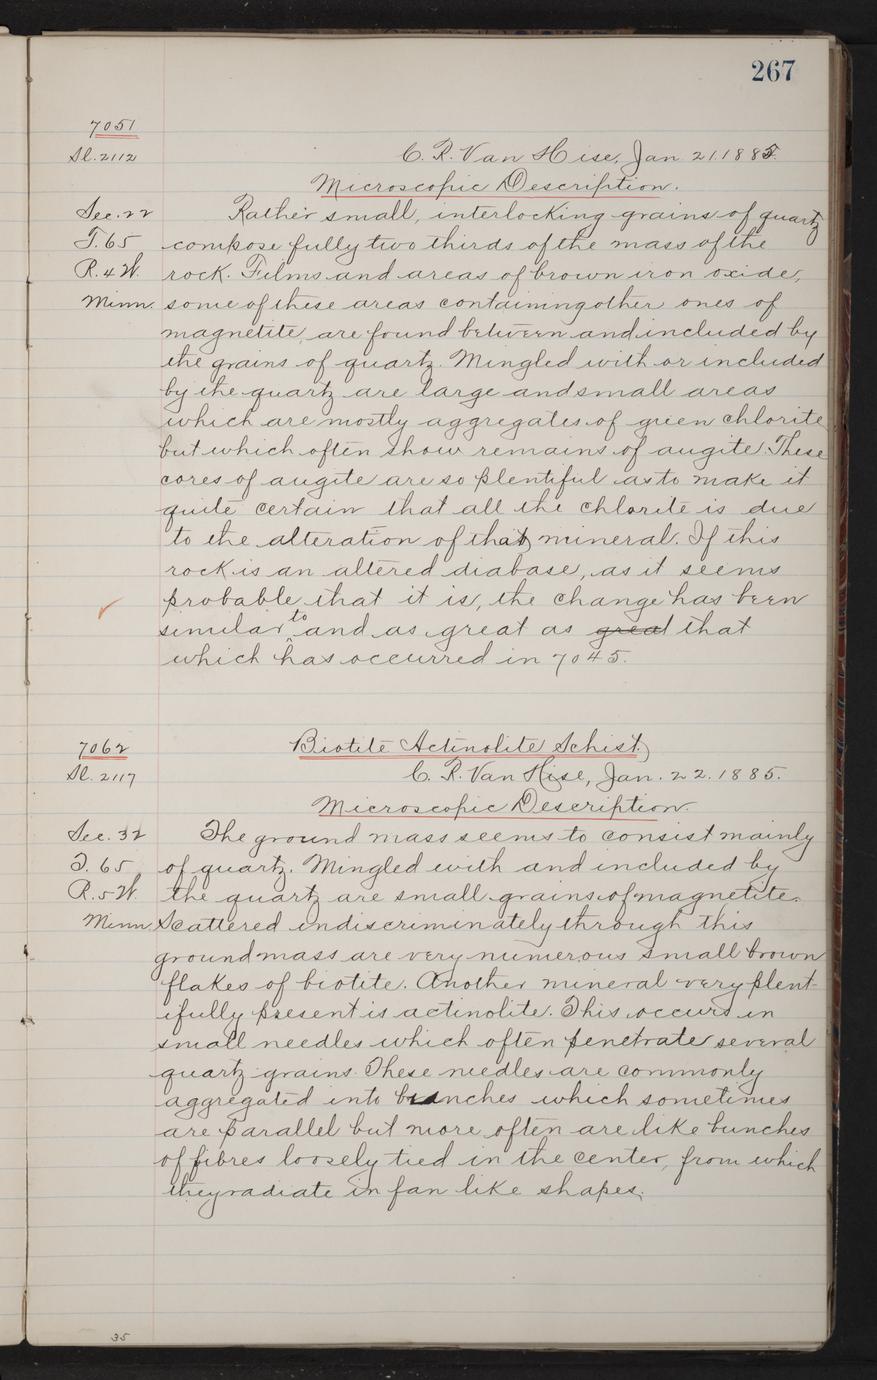 267
7051
Sl. 2112
C. R. Van Hise, Jan 21. 1885.
Microscopic Description.
Sec. 22
T. 65
R. 4 W.
Minn.
Rather small, interlocking grains of quartz
compose fully two thirds of the mass of the
rock. Films and areas of brown iron oxide,
some of these areas containing other ones of
magnetite, are found between and included by
the grains of quartz. Mingled with or included
by the quartz are large and small areas
which are mostly aggregates of green chlorite
but which often show remains of augite. These
cores of augite are so plentiful as to make it
quite certain that all the chlorite is due
to the alteration of that mineral. If this
rock is an altered diabase, as it seems
probable that it is, the change has been
similar to and as great as great that
which has occurred in 7045.
7062
Sl. 2117
Biotite Actinolite Schist.
C. R. Van Hise, Jan. 22. 1885.
Microscopic Description.
Sec. 32
T. 65
R. 5 W.
Minn.
The ground mass seems to consist mainly
of quartz. Mingled with and included by
the quartz are small grains of magnetite.
Scattered indiscriminately through this
groundmass are very numerous small brown
flakes of biotite. Another mineral very plent-
ifully present is actinolite. This occurs in
small needles which often penetrate several
quartz grains. These needles are commonly
aggregated into bunches which sometimes
are parallel but more often are like bunches
of fibres loosely tied in the center, from which
they radiate in fan like shapes.
35